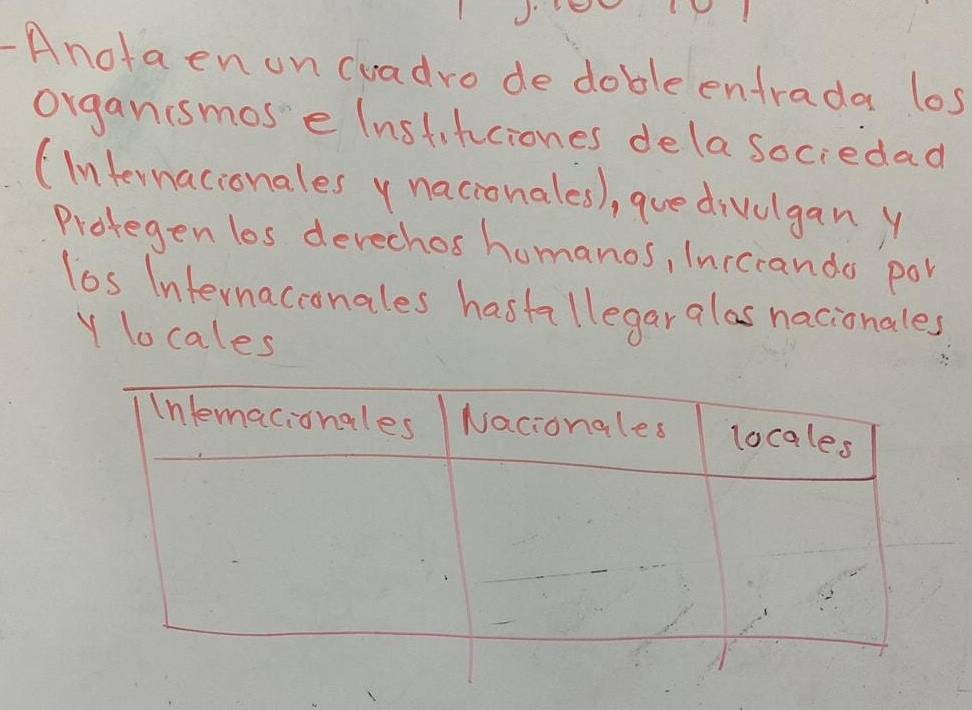 - Anota en un cuadro de doble entrada los
organismos e Instituciones de la Sociedad
(Internacionales y nacionales), que divulgan y
Protegen los derechos humanos, Iniciando por
los Internacionales hasta llegar a los nacionales
Y locales
Internacionales Nacionales locales